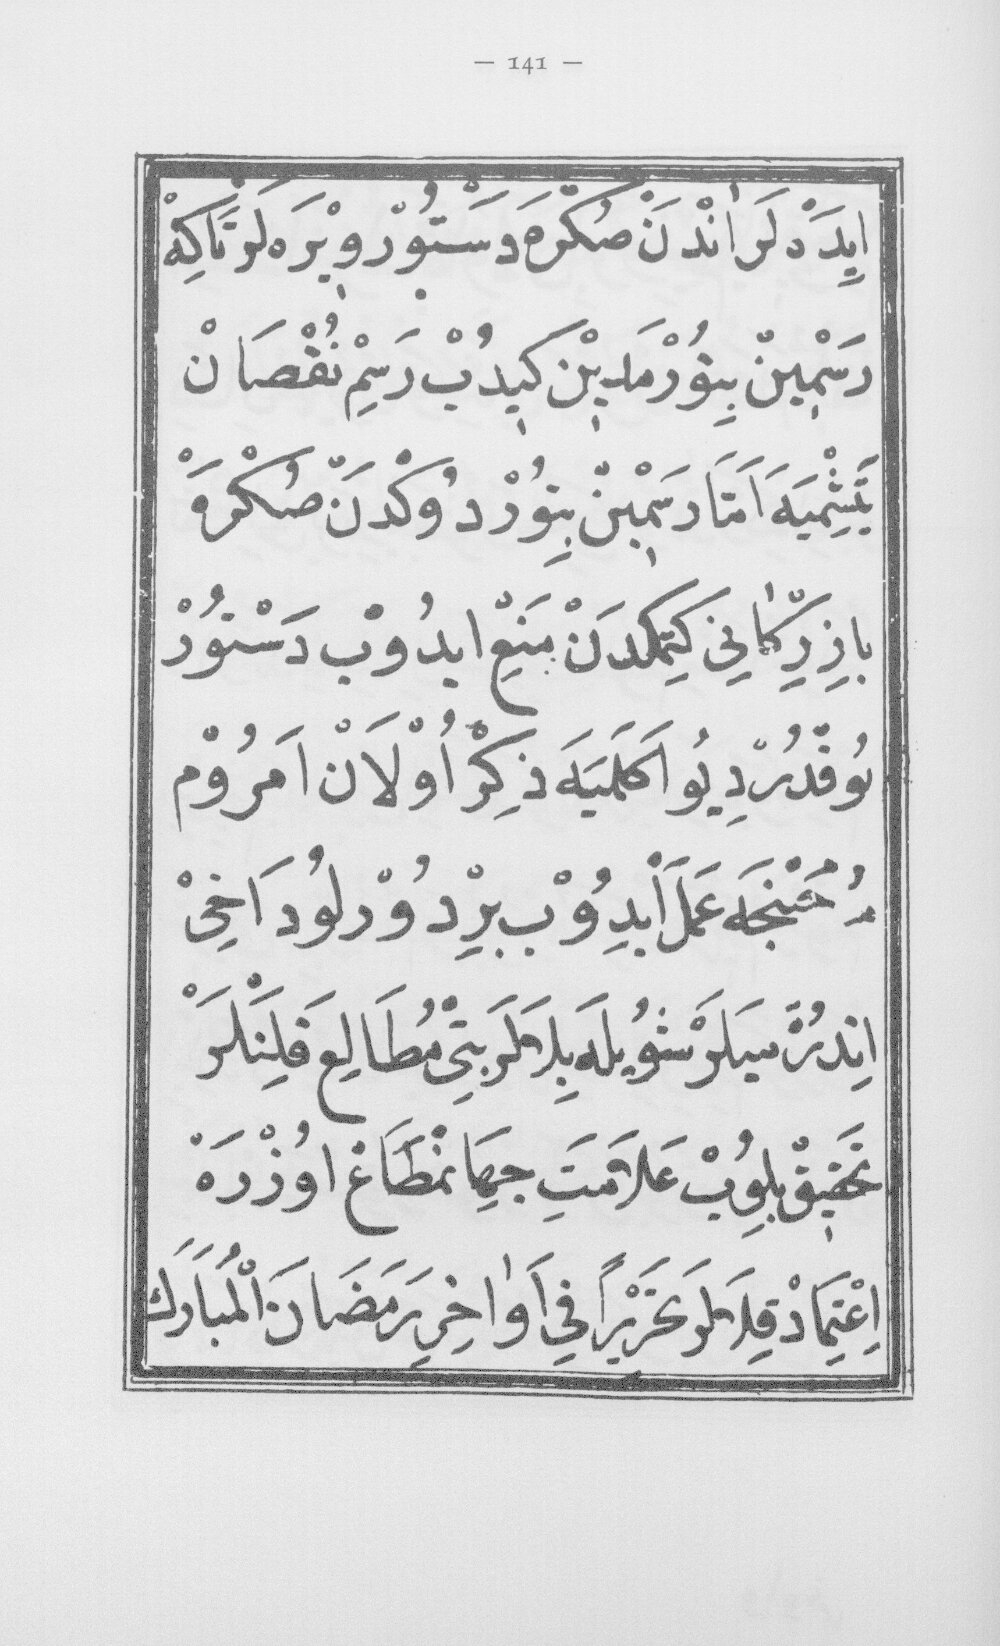 — 141 —
ايِدَهْ لَرْ اٰنْدَنْ صُكْرَه دَسْتُورْ ويْرَه لَرْ تَاكِهْ
رَسْمِينْ بِتُورْمَدِينْ كَيِدُبْ رَسِمْ نُقْصَانْ
يَتِشْمِيَهَ اَمَّا رَسْمِينْ بِتُورْدُوكْدَنْ صُكْرَهَ
بازِرِكَانِي كِتْمَكْدَنْ مَنِعْ ايدُوبْ دَسْتُورْ
يُوقْدُرْ دِيُو اَكْلَمَيَهَ ذِكِرْ اُوْلَانْ اَمْرُومْ
مُوجَبِنْجَه عَمَلْ اَيدِوُبْ بِرْ دُورْلُو دَاخِىْ
اِندُرْمَيَلَرْ شُويْلَه بِلَهلَرْ بِتِى مُطَالِعَ قِلَنْلَرْ
تَحْقِيقْ بِلِوُبْ عَلَامَتِ جِهَانْمُطَاعْ اوُزْرَهْ
اِعْتِمَادْ قِلَهلَرْ تَحْرِيْراً فِي اَوٰاخِرِ رَمَضَانَ الْمُبَارَك